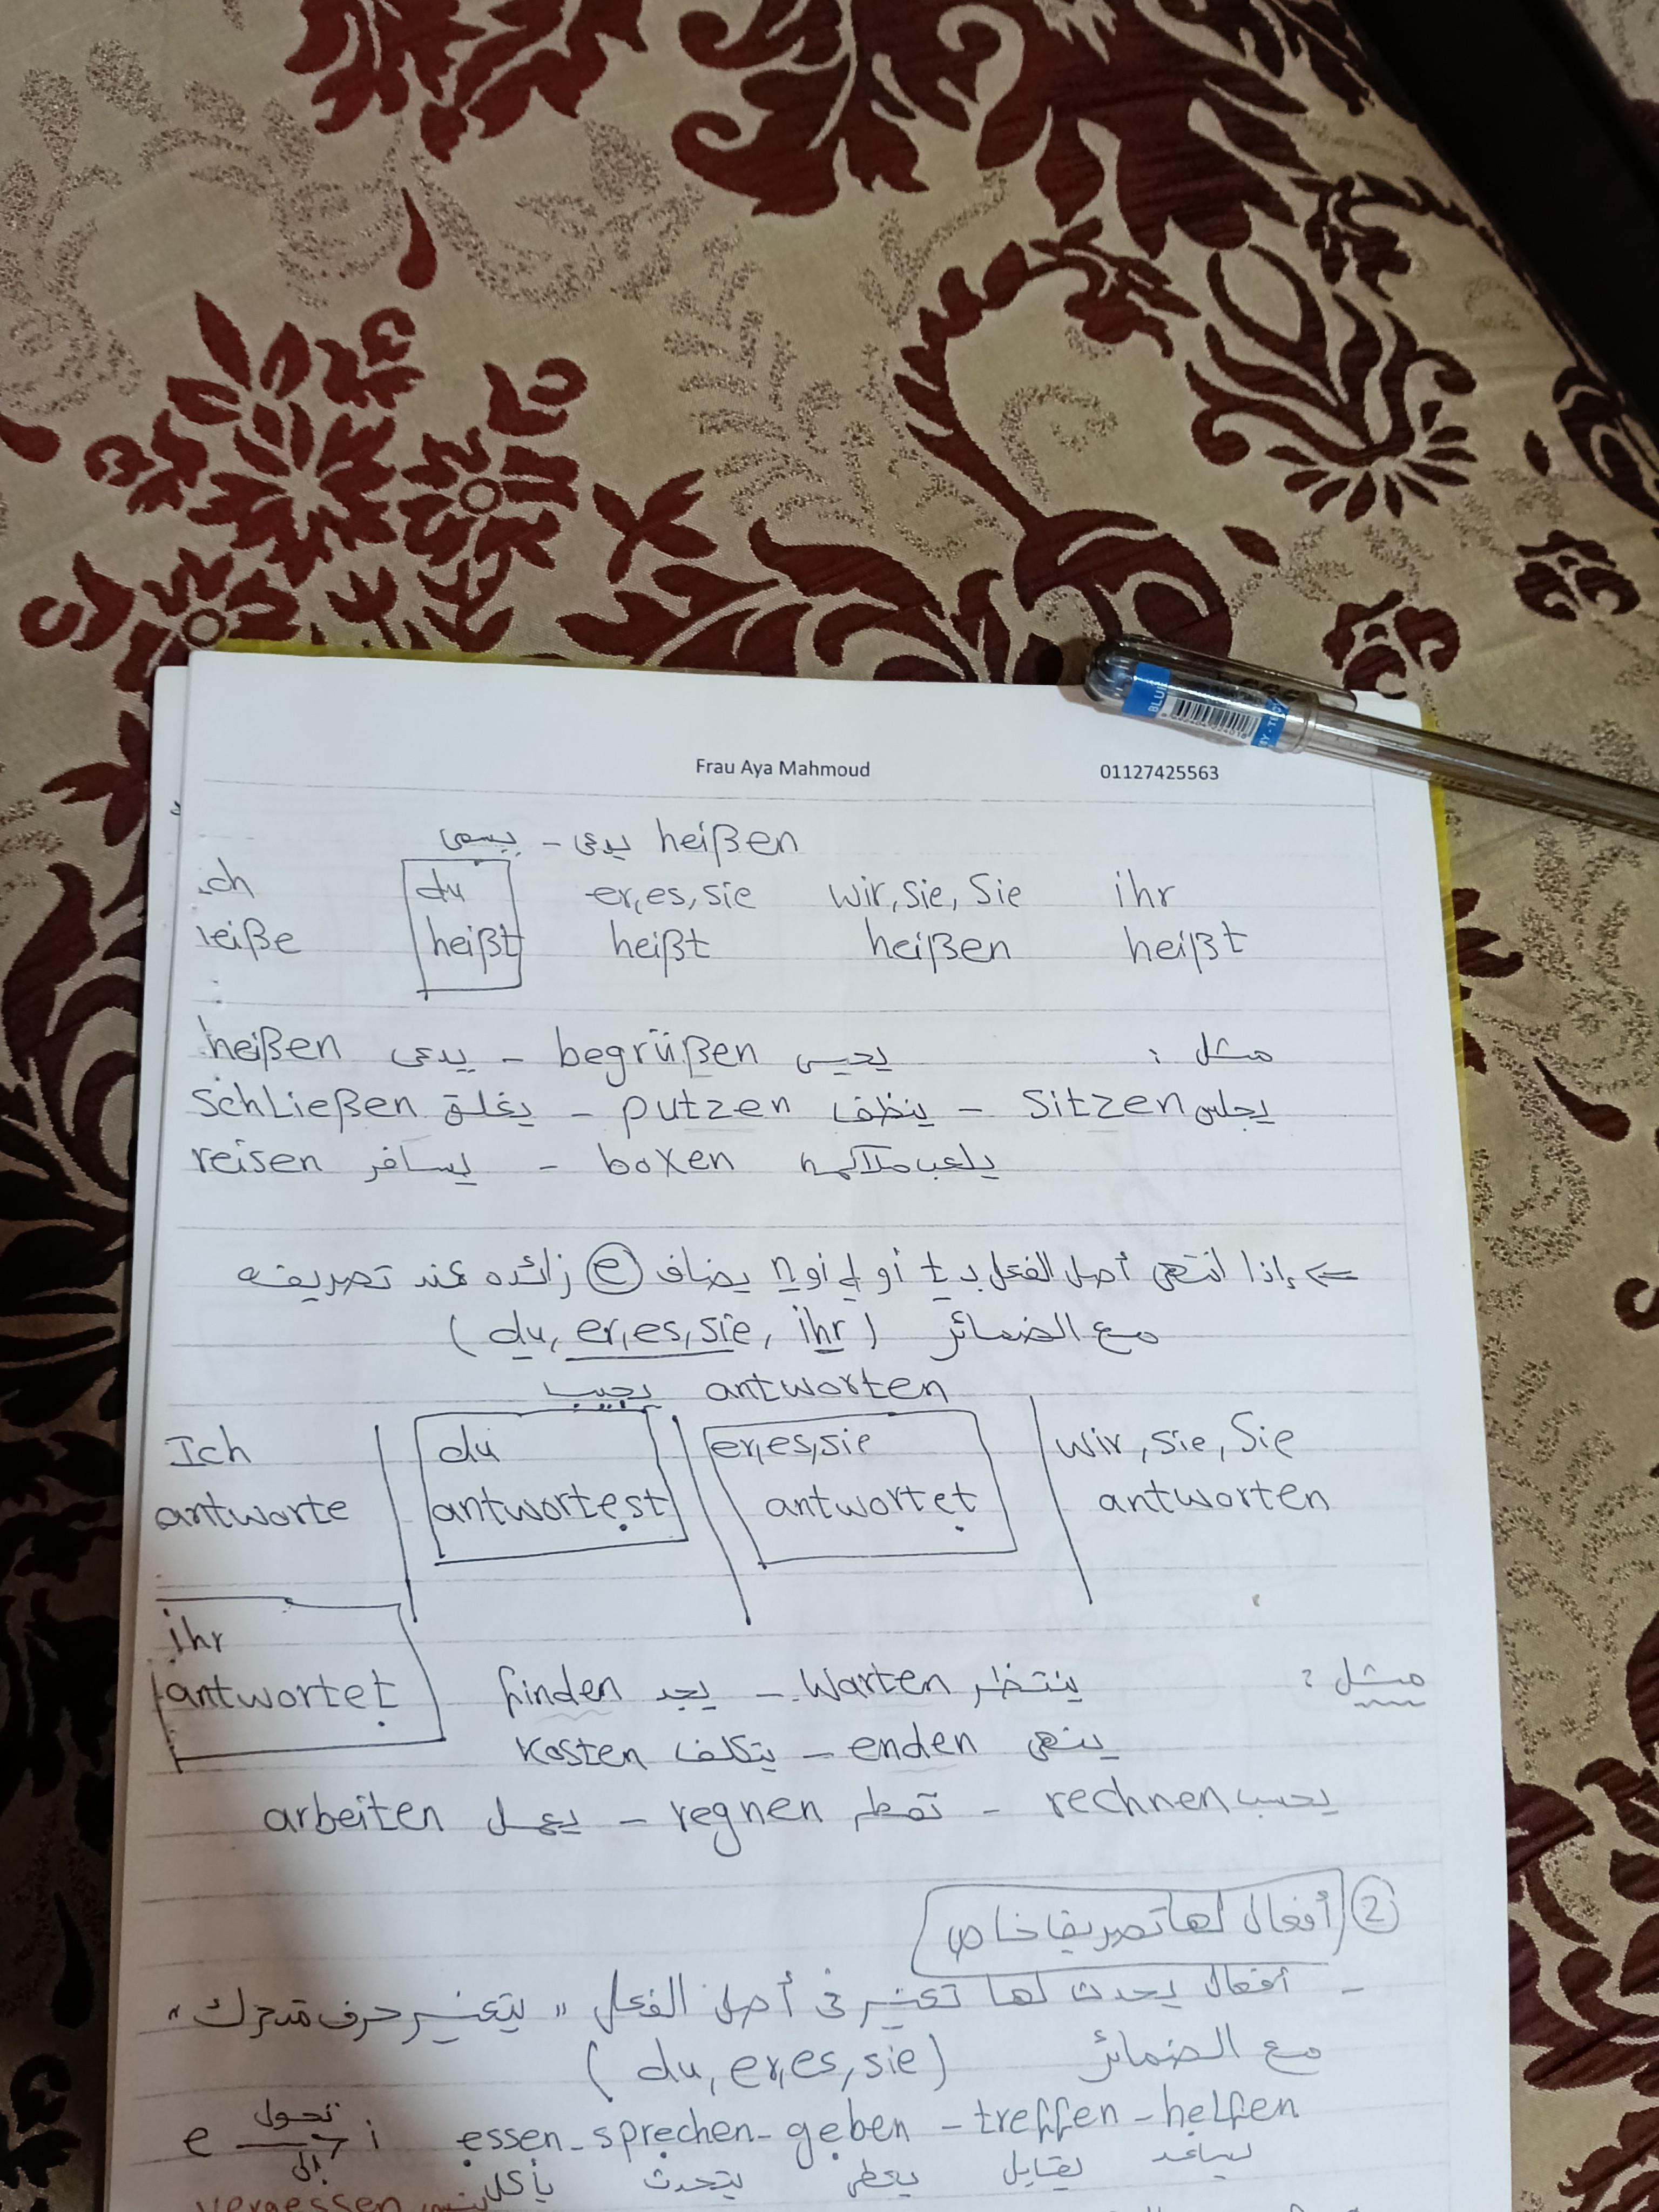 BLUE
Frau Aya Mahmoud 01127425563
heißen يدعى - يسمى
ich du er, es, sie wir, sie, Sie ihr
heiße heißt heißt heißen heißt
مثل :
heißen يدعى - begrüßen يحيى
schließen يغلق - putzen ينظف - sitzen يجلس
reisen يسافر - boxen يلعب ملاكمه
← إذا انتهى أصل الفعل بـ t أو d أو n يضاف e زائده عند تصريفه
مع الضمائر (du, er, es, sie, ihr)
antworten يجيب
Ich du er, es, sie wir, sie, Sie
antworte antwortest antwortet antworten
ihr
antwortet
مثل :
finden يجد - warten ينتظر
kosten يتكلف - enden ينهى
arbeiten يعمل - regnen تمطر - rechnen يحسب
② أفعال لها تصريف خاص
- أفعال يحدث لها تغيير فى أصل الفعل " يتغير حرف متحرك "
مع الضمائر (du, er, es, sie)
e تحول إلى i essen - sprechen - geben - treffen - helfen
يأكل يتحدث يعطى يقابل يساعد
vergessen